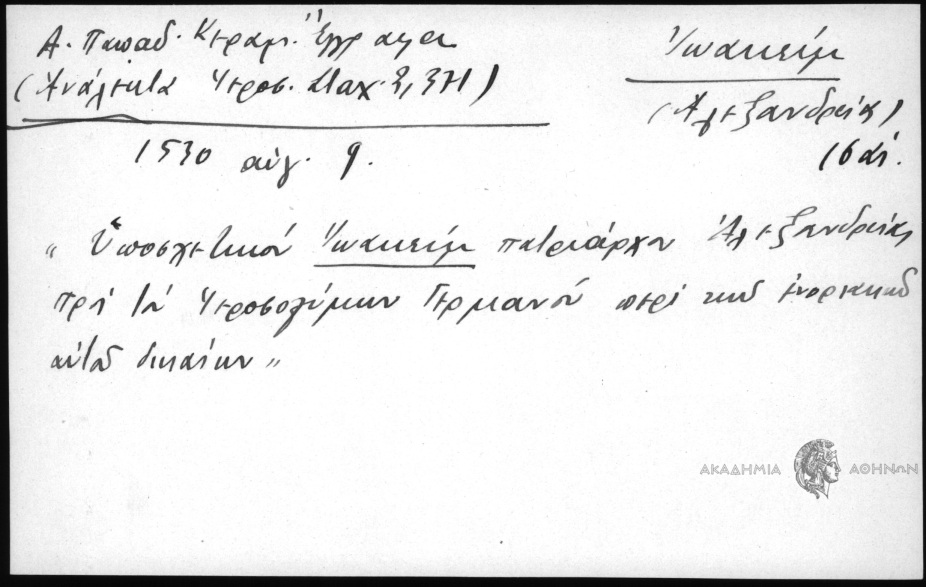 Α. Παπαδ. Κεραμ. Έγγραφα
(Ανάλεκτα Ιεροσ. Σταχ. Σ,
Ιωακείμ
(Αλεξανδρείας)
16 αι.
1530 αύγ. 9.
"Υποσχετικόν Ιωακείμ πατριάρχου Αλεξανδρείας
πρός τόν Ιεροσολύμων Γερμανόν περί των ενοριακών
αυτού δικαίων"
ΑΚΑΔΗΜΙΑ ΑΘΗΝΩΝ